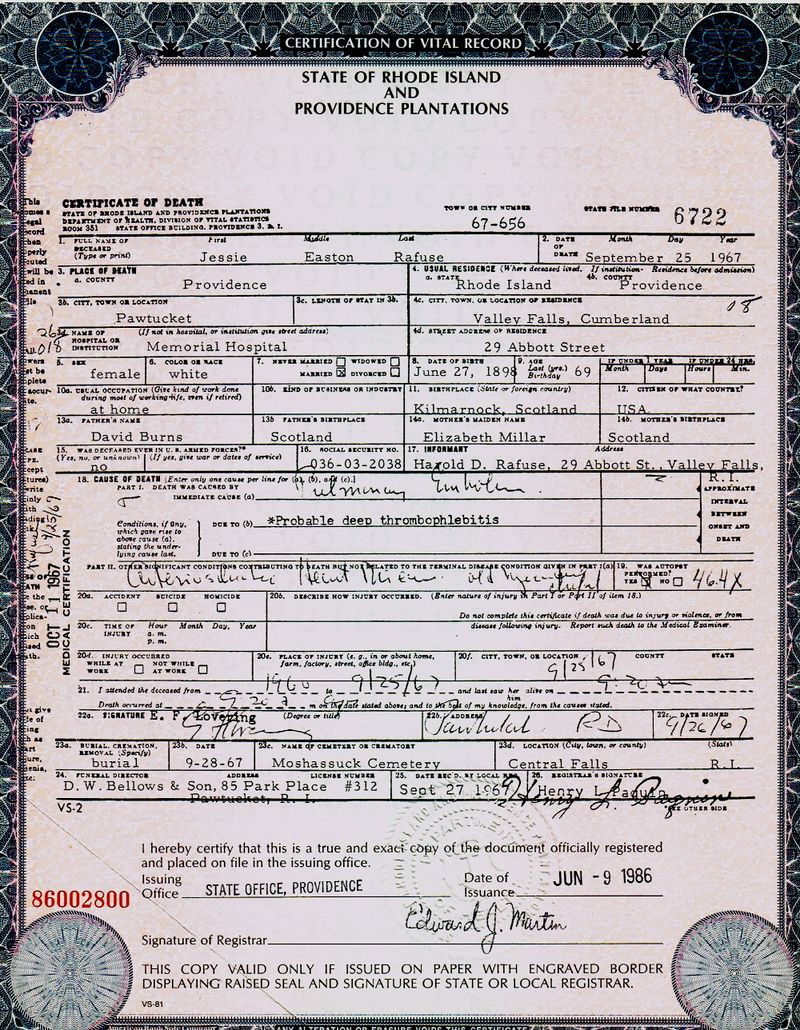 CERTIFICATION OF VITAL RECORD
STATE OF RHODE ISLAND
AND
PROVIDENCE PLANTATIONS
CERTIFICATE OF DEATH
STATE OF RHODE ISLAND AND PROVIDENCE PLANTATIONS
DEPARTMENT OF HEALTH, DIVISION OF VITAL STATISTICS
ROOM 351 STATE OFFICE BUILDING, PROVIDENCE 3, R. I.
TOWN OR CITY NUMBER 67-656
STATE FILE NUMBER 6722
1. FULL NAME OF DECEASED (Type or print) First Middle Last
Jessie Easton Rafuse
2. DATE OF DEATH Month Day Year
September 25 1967
3. PLACE OF DEATH
a. COUNTY Providence
4. USUAL RESIDENCE (Where deceased lived. If institution- Residence before admission)
a. STATE Rhode Island
4b. COUNTY Providence
3b. CITY, TOWN OR LOCATION Pawtucket
3c. LENGTH OF STAY IN 3b.
4c. CITY, TOWN, OR LOCATION OF RESIDENCE Valley Falls, Cumberland
08
NAME OF HOSPITAL OR INSTITUTION (If not in hospital, or institution give street address)
Memorial Hospital
4d. STREET ADDRESS OF RESIDENCE 29 Abbott Street
5. SEX female
6. COLOR OR RACE white
7. NEVER MARRIED WIDOWED
MARRIED ☒ DIVORCED
8. DATE OF BIRTH June 27, 1898
9. AGE Last (yrs.) Birthday 69
IF UNDER 1 YEAR Months Days
IF UNDER 24 HRS. Hours Min.
10a. USUAL OCCUPATION (Give kind of work done during most of working life, even if retired)
at home
10b. KIND OF BUSINESS OR INDUSTRY
11. BIRTHPLACE (State or foreign country) Kilmarnock, Scotland
12. CITIZEN OF WHAT COUNTRY? USA
13a. FATHER'S NAME David Burns
13b FATHER'S BIRTHPLACE Scotland
14a. MOTHER'S MAIDEN NAME Elizabeth Millar
14b. MOTHER'S BIRTHPLACE Scotland
15. WAS DECEASED EVER IN U. S. ARMED FORCES?
(Yes, no, or unknown) (If yes, give war or dates of service)
no
16. SOCIAL SECURITY NO. 036-03-2038
17. INFORMANT Address
Harold D. Rafuse, 29 Abbott St., Valley Falls, R.I.
18. CAUSE OF DEATH (Enter only one cause per line for (a), (b), and (c).)
PART I. DEATH WAS CAUSED BY
IMMEDIATE CAUSE (a) Pulmonary Embolism
APPROXIMATE INTERVAL BETWEEN ONSET AND DEATH
Conditions, if any, which gave rise to above cause (a), stating the underlying cause last.
DUE TO (b) *Probable deep thrombophlebitis
DUE TO (c)
PART II. OTHER SIGNIFICANT CONDITIONS CONTRIBUTING TO DEATH BUT NOT RELATED TO THE TERMINAL DISEASE CONDITION GIVEN IN PART I(a)
19. WAS AUTOPSY PERFORMED? YES NO
464X
OCT 11 1967
MEDICAL CERTIFICATION
20a. ACCIDENT SUICIDE HOMICIDE
20b. DESCRIBE HOW INJURY OCCURRED. (Enter nature of injury in Part I or Part II of item 18.)
20c. TIME OF INJURY Hour Month, Day, Year
a. m.
p. m.
Do not complete this certificate if death was due to injury or violence, or from disease following injury. Report such death to the Medical Examiner.
20d. INJURY OCCURRED
WHILE AT WORK NOT WHILE AT WORK
20e. PLACE OF INJURY (e. g., in or about home, farm, factory, street, office bldg., etc.)
20f. CITY, TOWN, OR LOCATION COUNTY STATE
21. I attended the deceased from 1960 to 9/25/67 and last saw her him alive on 9/25/67
Death occurred at m on the date stated above; and to the best of my knowledge, from the causes stated.
22a. SIGNATURE (Degree or title) E. F. Lovering
22b. ADDRESS
22c. DATE SIGNED 9/26/67
23a. BURIAL, CREMATION, REMOVAL (Specify) burial
23b. DATE 9-28-67
23c. NAME OF CEMETERY OR CREMATORY Moshassuck Cemetery
23d. LOCATION (City, town, or county) (State)
Central Falls R.I.
24. FUNERAL DIRECTOR ADDRESS LICENSE NUMBER
D. W. Bellows & Son, 85 Park Place #312
Pawtucket, R. I.
25. DATE REC'D. BY LOCAL REG. Sept 27 1967
26. REGISTRAR'S SIGNATURE Henry L. Paquin
SEE OTHER SIDE
VS-2
I hereby certify that this is a true and exact copy of the document officially registered
and placed on file in the issuing office.
Issuing Office STATE OFFICE, PROVIDENCE
Date of Issuance JUN -9 1986
86002800
Edward J. Martin
Signature of Registrar
THIS COPY VALID ONLY IF ISSUED ON PAPER WITH ENGRAVED BORDER
DISPLAYING RAISED SEAL AND SIGNATURE OF STATE OR LOCAL REGISTRAR.
VS-81
ANY ALTERATION OR ERASURE VOIDS THIS CERTIFICATE